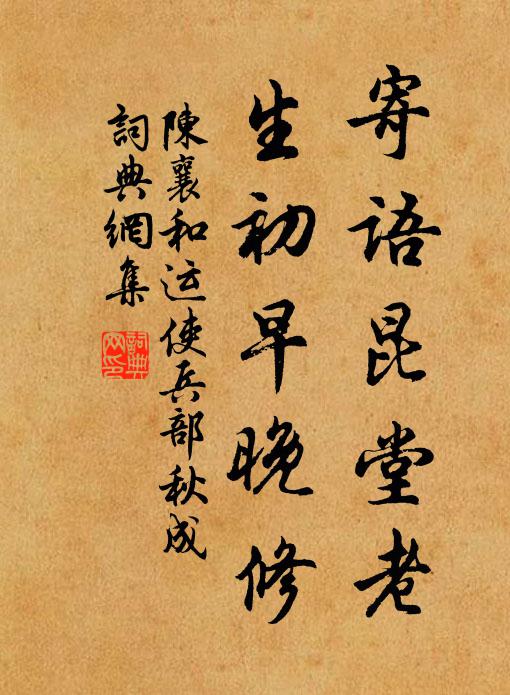 寄語昆堂老
生初早晚修
陳襄和运使兵部秋成
詞典網集
詞典網印